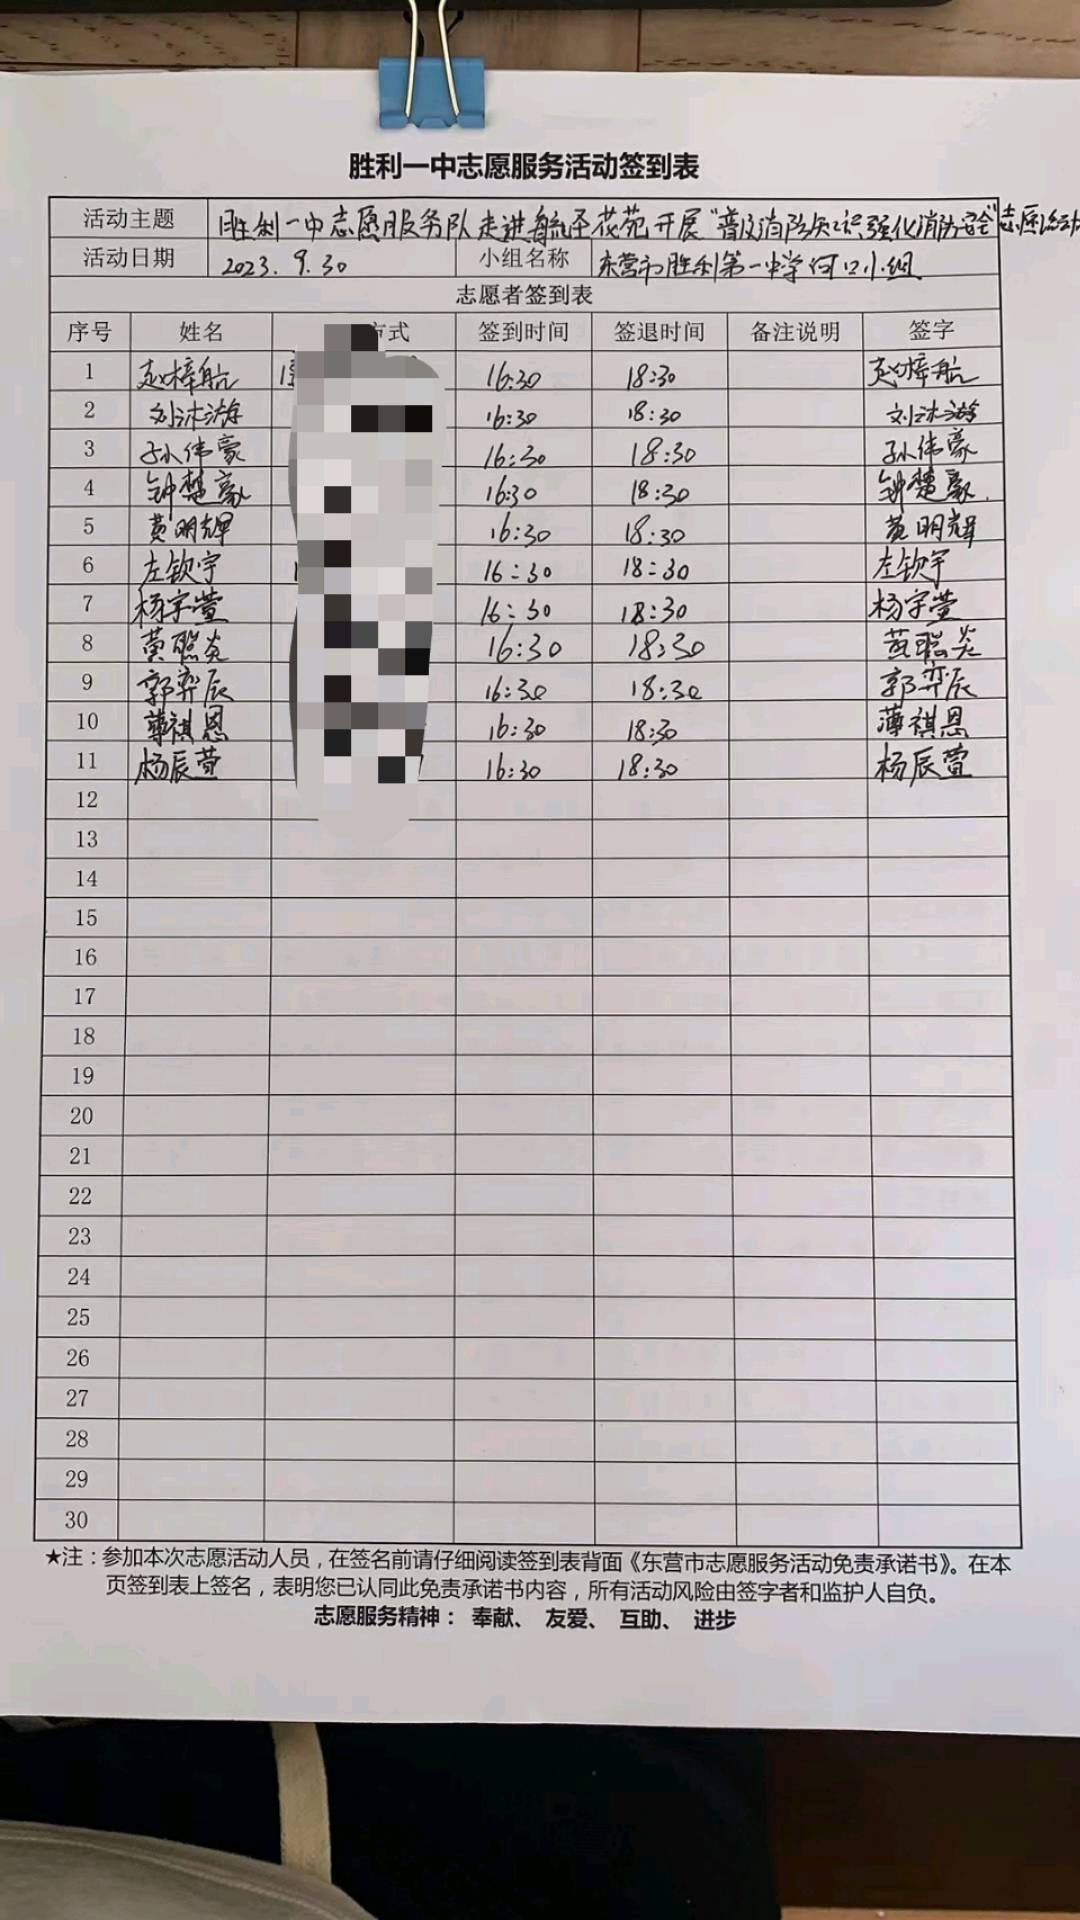 胜利一中志愿服务活动签到表
活动主题 胜利一中志愿服务队走进航圣花苑开展“普及消防知识强化消防安全”志愿活动
活动日期 2023.9.30 小组名称 东营市胜利第一中学河口小组
志愿者签到表
序号 姓名 方式 签到时间 签退时间 备注说明 签字
1 赵梓航 16:30 18:30 赵梓航
2 刘沐游 16:30 18:30 刘沐游
3 孙伟豪 16:30 18:30 孙伟豪
4 钟楚豪 16:30 18:30 钟楚豪
5 黄明辉 16:30 18:30 黄明辉
6 左钦宇 16:30 18:30 左钦宇
7 杨宇萱 16:30 18:30 杨宇萱
8 黄熙炎 16:30 18:30 黄熙炎
9 郭弈辰 16:30 18:30 郭弈辰
10 薄祺恩 16:30 18:30 薄祺恩
11 杨辰萱 16:30 18:30 杨辰萱
12
13
14
15
16
17
18
19
20
21
22
23
24
25
26
27
28
29
30
★注：参加本次志愿活动人员，在签名前请仔细阅读签到表背面《东营市志愿服务活动免责承诺书》。在本
页签到表上签名，表明您已认同此免责承诺书内容，所有活动风险由签字者和监护人自负。
志愿服务精神： 奉献、 友爱、 互助、 进步